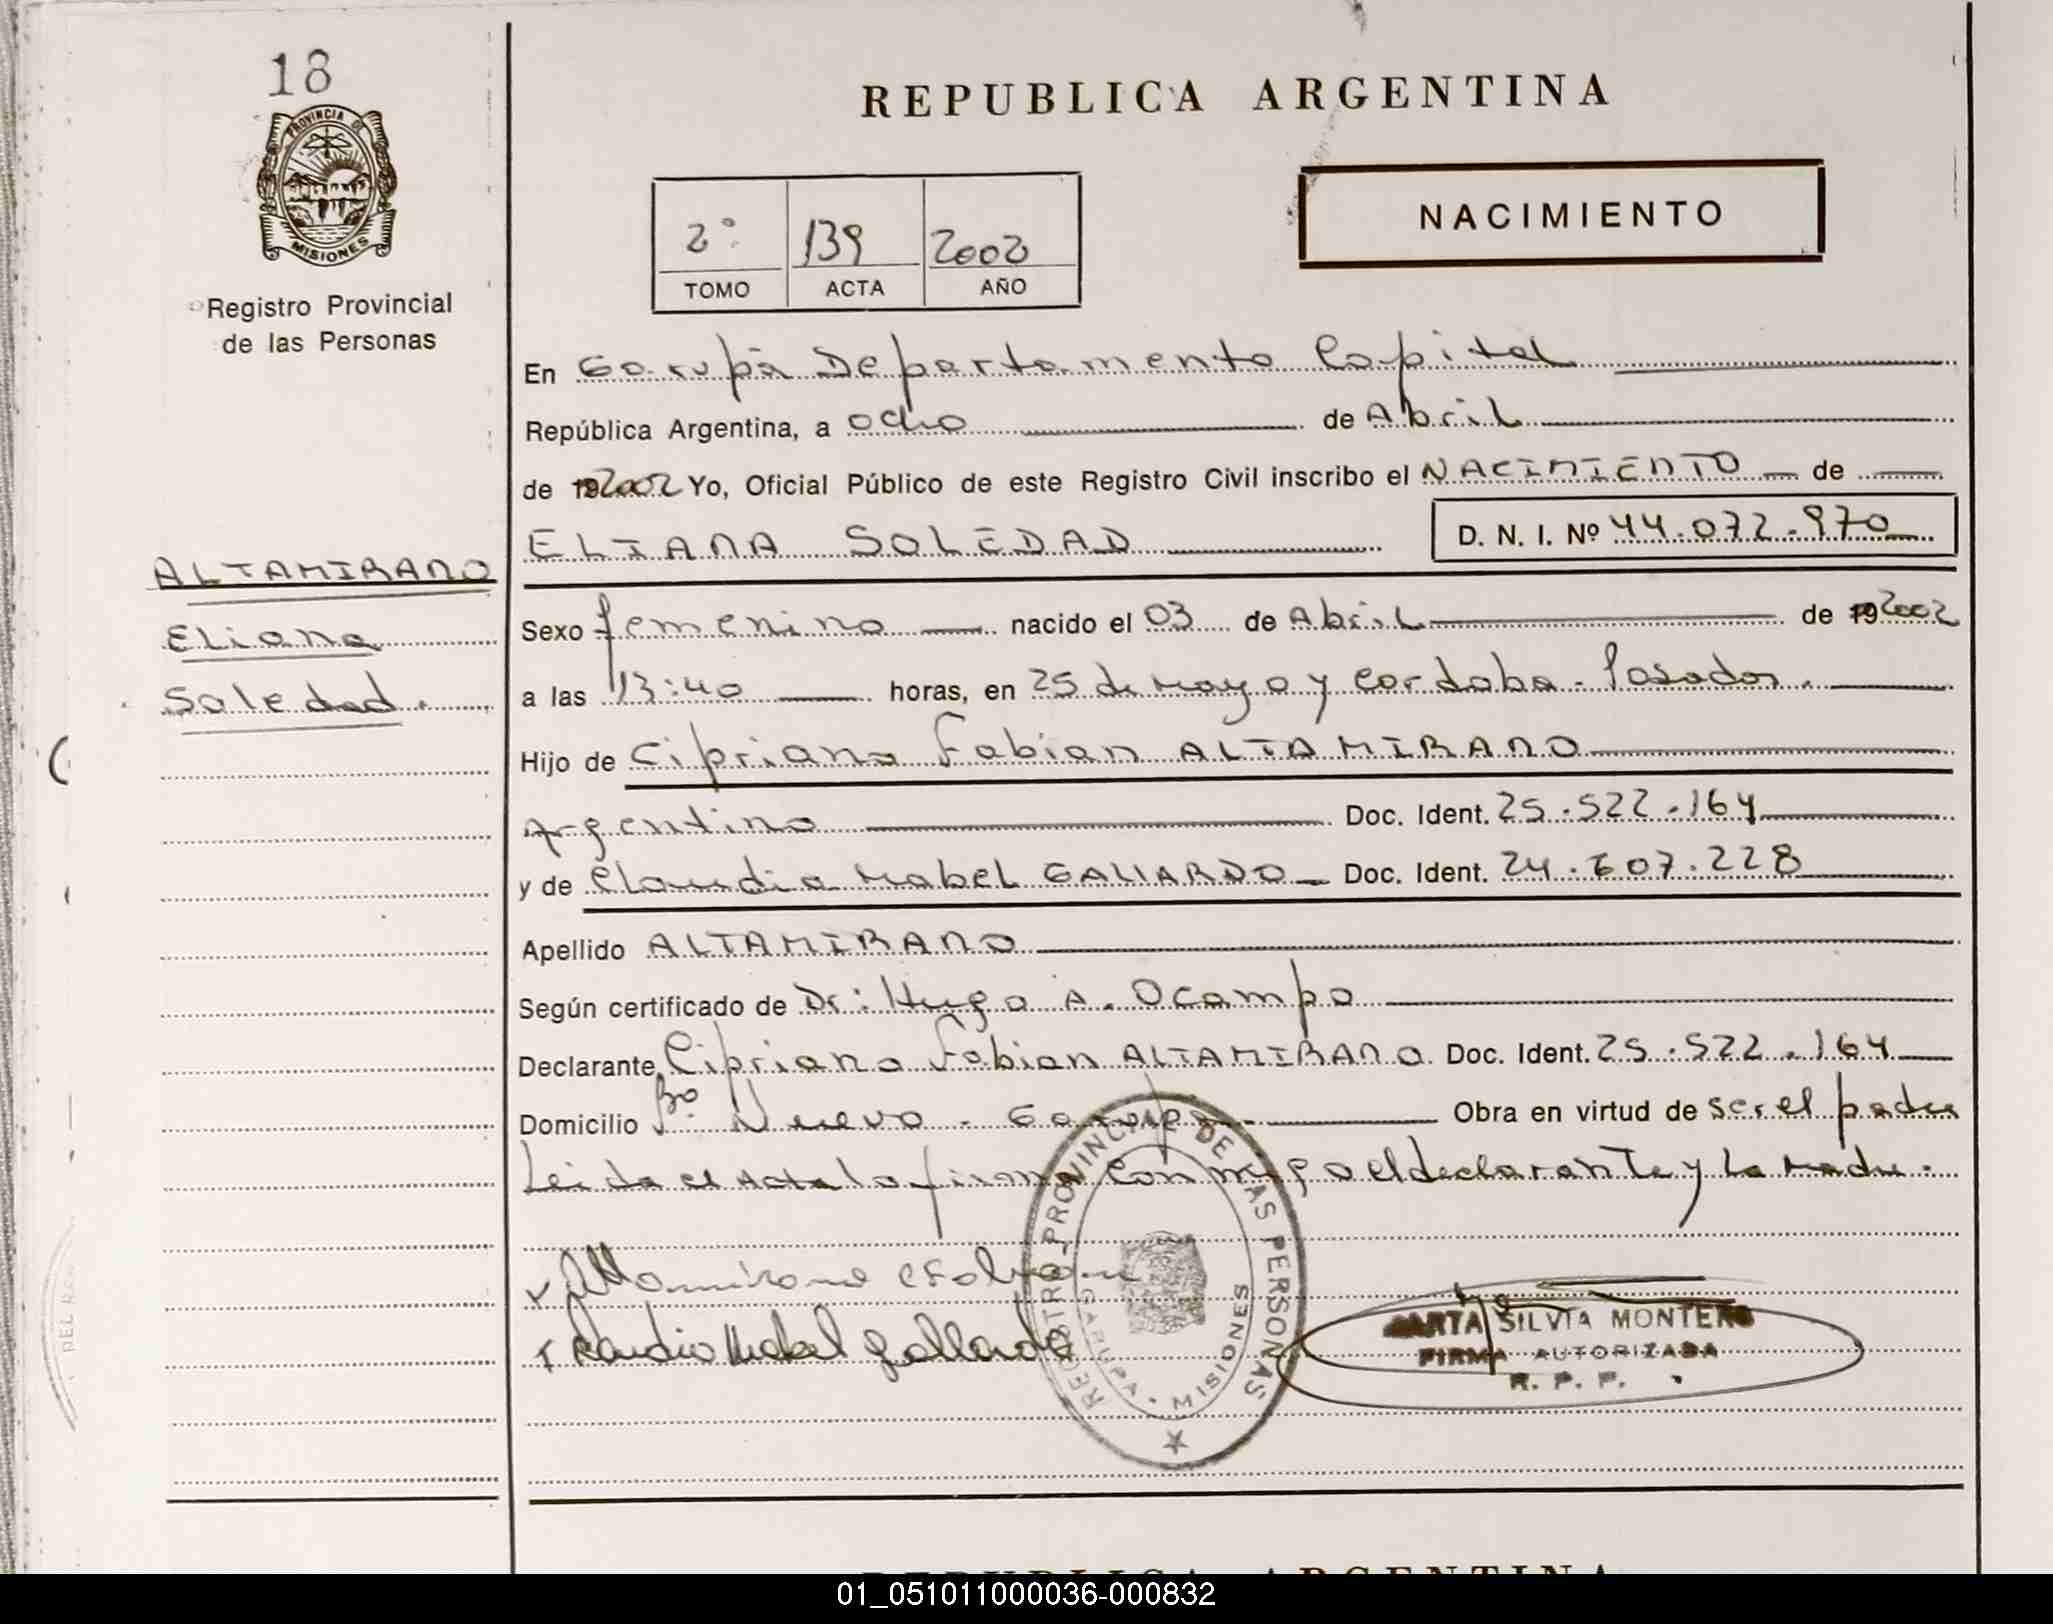 18
PROVINCIA DE
MISIONES
Registro Provincial
de las Personas
ALTAMIRANO
Eliana
Soledad.
REPUBLICA ARGENTINA
2º 139 2002
TOMO ACTA AÑO
NACIMIENTO
En Garupá Departamento Capital
República Argentina, a ocho de Abril
de 192002 Yo, Oficial Público de este Registro Civil inscribo el NACIMIENTO de
ELIANA SOLEDAD D. N. I. Nº 44.072.970
Sexo femenino nacido el 03 de Abril de 192002
a las 13:40 horas, en 25 de Mayo y Cordoba - Posadas.
Hijo de Cipriano Fabian ALTAMIRANO
Argentino Doc. Ident. 25.522.164
y de Claudia Mabel GALLARDO Doc. Ident. 24.607.228
Apellido ALTAMIRANO
Según certificado de Dr: Hugo A. Ocampo
Declarante Cipriano Fabian ALTAMIRANO Doc. Ident. 25.522.164
Domicilio Bº Nuevo - Garupá Obra en virtud de ser el padre
Leida el Acta la firma conmigo el declarante y la Madre.
Altamirano
Claudia Mabel Gallardo
REGISTRO PROVINCIAL DE LAS PERSONAS
GARUPA - MISIONES
MARTA SILVIA MONTERO
FIRMA AUTORIZADA
R. P. P.
REPUBLICA ARGENTINA
01_051011000036-000832